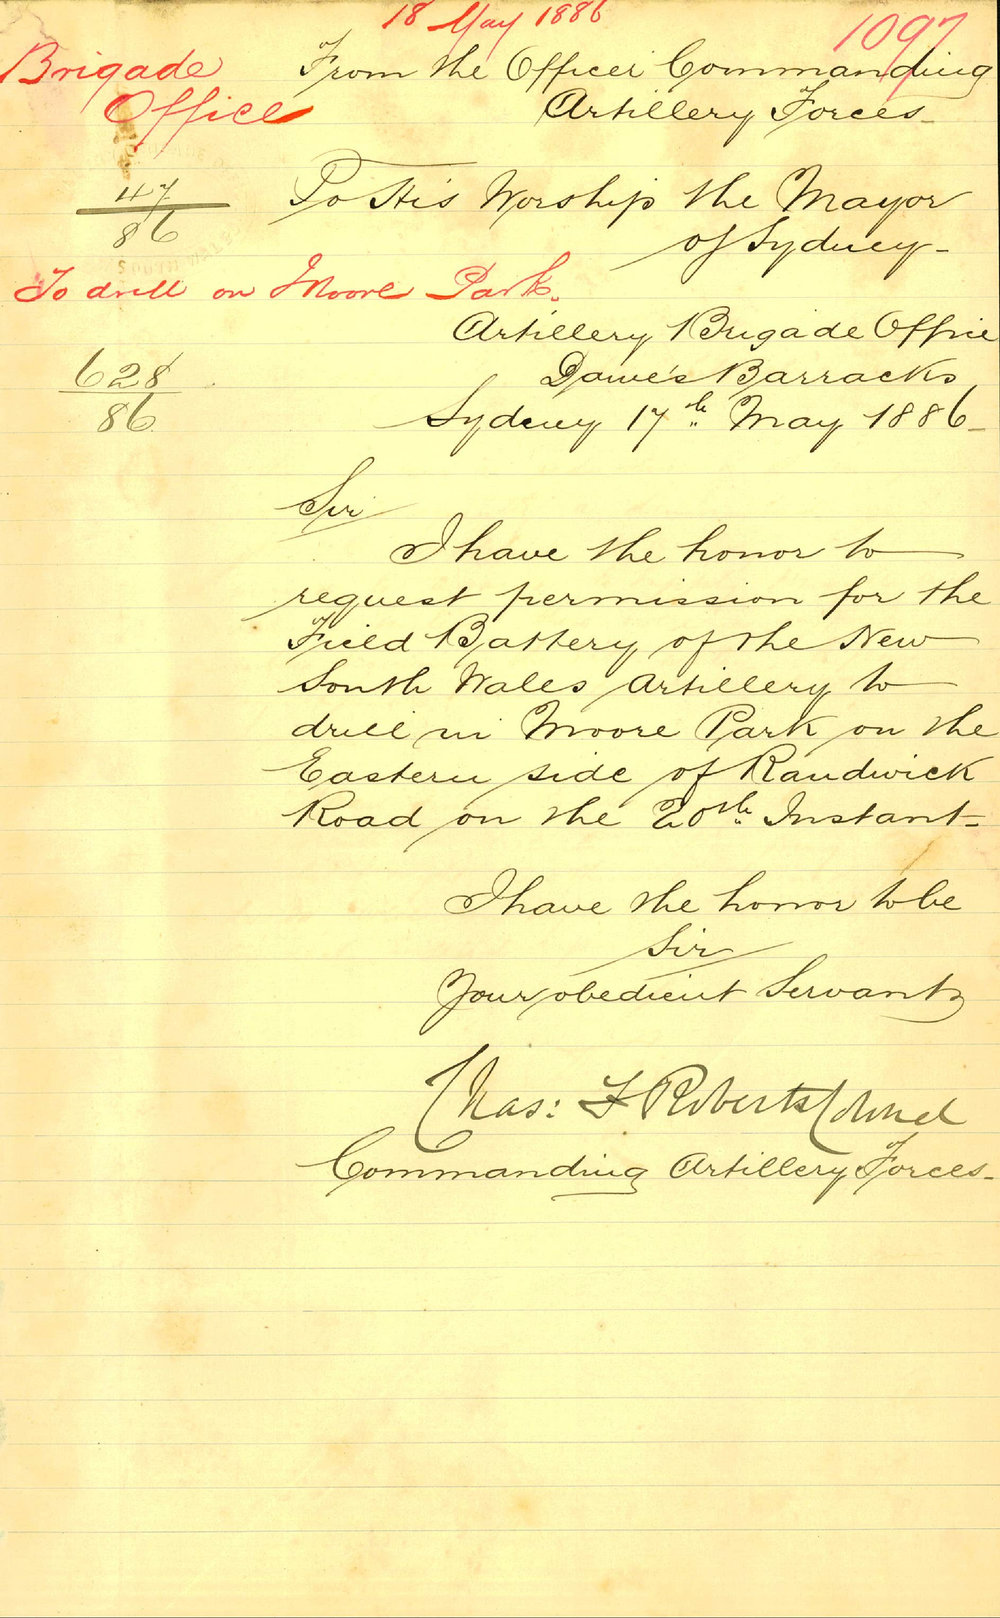 18 May 1886
1097
Brigade
Office
From the Officer Commanding
Artillery Forces
47
86
To His Worship the Mayor
of Sydney
To drill on Moore Park.
Artillery Brigade Office
Dawe's Barracks
628
86
Sydney 17th May 1886
Sir
I have the honor to
request permission for the
Field Battery of the New
South Wales Artillery to
drill in Moore Park on the
Eastern side of Randwick
Road on the 20th Instant
I have the honor to be
Sir
Your obedient Servant
Chas: F Roberts Colonel
Commanding Artillery Forces